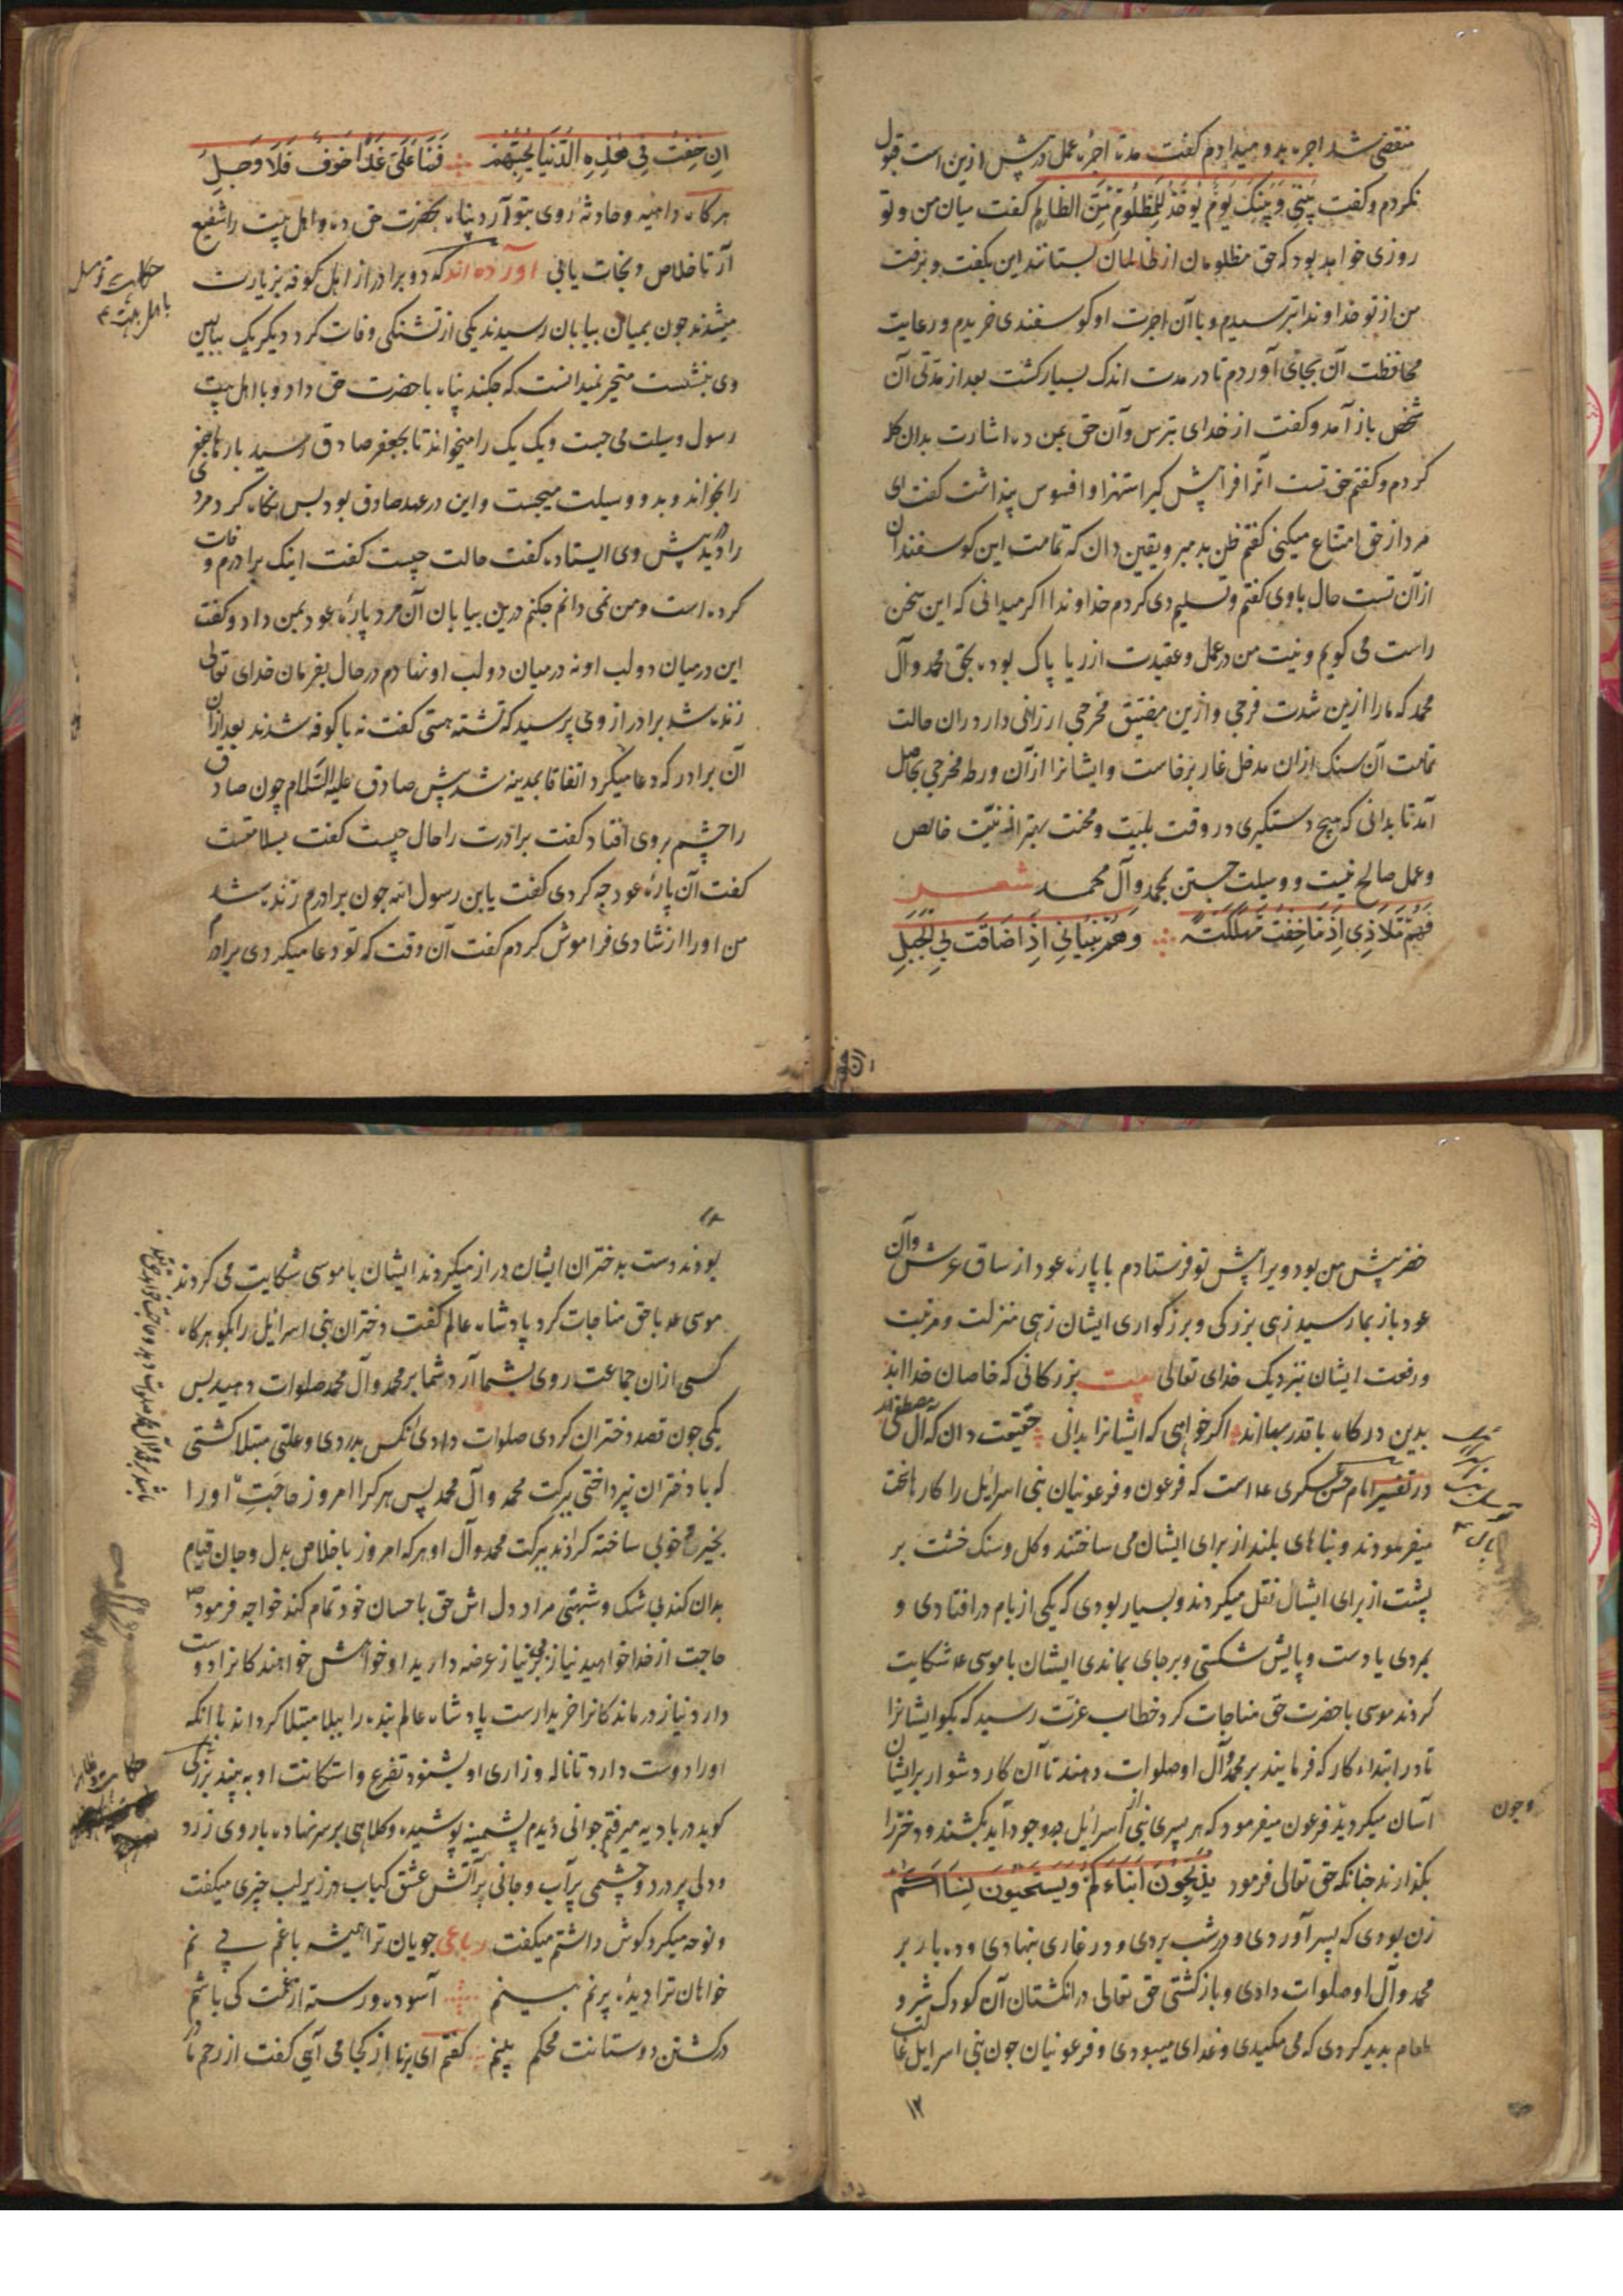 منقضی شد اجره بدو میدادم گفت مدة اجرهٔ عمل درپیش ازین است قبول
نکردم و گفت بینی و بینک یوم یوخذ للمظلوم من الظالم گفت میان من و تو
روزی خواهد بود که حق مظلومان از ظالمان بستانند این بگفت و برفت
من از تو خداوندا بترسیدم و باآن اجرت او گوسفندی خریدم و رعایت
محافظت آن بجای آوردم تا در مدت اندک بسیار گشت بعد از مدتی آن
شخص باز آمد و گفت از خدای بترس و آن حق بمن ده اشارت بدان گله
کردم و گفتم حق تست آنرا فراپیش گیر استهزا و افسوس پنداشت گفت ای
مرد از حق امتناع میکنی گفتم ظن بد مبر و یقین دان که تمامت این گوسفندان
از آن تست حال باوی گفتم و تسلیم وی کردم خداوندا اکر میدانی که این سخن
راست می گویم و نیت من در عمل و عقیدت از ریا پاک بوده بحق محمد و آل
محمد که مارا ازین شدت فرجی و ازین مضیق مخرجی ارزانی دار دران حالت
تمامت آن سنک ازان مدخل غار برخاست و ایشانرا از آن ورطه مخرجی بحاصل
آمد تا بدانی که هیچ دستگیری در وقت بلیت و محنت بهتر از نیت خالص
و عمل صالح نیست و وسیلت جستن بمحمد وآل محمد شعر
فهم ملاذی اذ ما خفت مهلکة وهم بنیانی اذا ضاقت بی الحیل
ان خفت فی هذه الدنیا بحبهم فما علی غدا خوف فلا وجل
هرگاه داهیه و حادثهٔ روی بتو آرد پناه بحضرت حق ده و اهل بیت را شفیع
آر تا خلاص و نجات یابی آورده اند که دو برادر از اهل کوفه بزیارت
میشدند چون بمیان بیابان رسیدند یکی از تشنگی وفات کرد دیگر یک ببالین
وی بنشست متحیر نمیدانست که چکند پناه با حضرت حق داد و با اهل بیت
رسول وسیلت می جست و یک یک را میخواند تا بجعفر صادق رسید بارها جعفر
را بخواند و بدو وسیلت میجست و این در عهد صادق بود بس نگاه کرد مردی
را دید پیش وی ایستاده گفت حالت چیست گفت اینک برادرم وفات
کرده است و من نمی دانم چکنم درین بیابان آن مرد پارهٔ عود بمن داد و گفت
این درمیان دو لب او نه درمیان دو لب او نهادم درحال بفرمان خدای تعالی
زنده شد برادر از وی پرسید که تشنه هستی گفت نه با کوفه شدند بعد ازان
آن برادر که دعا میکرد اتفاقا بمدینه شد پیش صادق علیه السلام چون صادق
را چشم بروی افتاد گفت برادرت را حال چیست گفت بسلامتست
گفت آن پارهٔ عود چه کردی گفت یابن رسول الله چون برادرم زنده شد
من اورا از شادی فراموش کردم گفت آن وقت که تو دعا میکردی برادرم
حکایت توسل
باهل بیت ع
خضر پیش من بود ویرا پیش تو فرستادم با پارهٔ عود از ساق عرش وآن
عود باز بما رسید زهی بزرگی و بزرگواری ایشان زهی منزلت و مرتبت
و رفعت ایشان بنزدیک خدای تعالی بیت بزرگانی که خاصان خدااند
بدین درگاه با قدر بهااند اگر خواهی که ایشانرا بدانی حقیقت دان که آل مصطفی اند
در تفسیر امام حسن عسکری ع است که فرعون و فرعونیان بنی اسرائیل را کارها سخت
میفرمودند و بناهای بلند از برای ایشان می ساختند و گل و سنگ خشت بر
پشت از برای ایشان نقل میکردند و بسیار بودی که یکی از بام درافتادی و
بمردی یا دست و پایش شکستی و برجای بماندی ایشان با موسی ع شکایت
کردند موسی با حضرت حق مناجات کرد خطاب عزت رسید که بگو ایشانرا
تا در ابتداء کار که فرمایند بر محمد وآل او صلوات دهند تا آن کار دشوار بر ایشان
آسان میگردید فرعون میفرمود که هر پسری از بنی اسرائیل بوجود آید بکشند و دخترا
بگذارند چنانکه حق تعالی فرمود یذبحون ابناءکم ویستحیون نساءکم
زن بودی که پسر آوردی و در شب بردی و در غاری بنهادی و ده بار بر
محمد و آل او صلوات دادی و بازگشتی حق تعالی در انگشتان آن کودک شیر و
طعام بدید کردی که می مکیدی و غذای میبودی و فرعونیان چون بنی اسرایل غالب
وچون
۱۲
بودند دست بدختران ایشان دراز میکردند ایشان با موسی شکایت می کردند
موسی ع باحق مناجات کرد پادشاه عالم گفت دختران بنی اسرائیل را بگو هرگاه
کسی ازان جماعت روی بشما آرد شما بر محمد وآل محمد صلوات دهید پس
یکی چون قصد دختران کردی صلوات دادی آنکس بدردی و علتی مبتلا گشتی
که با دختران نپرداختی ببرکت محمد وآل محمد پس هر کرا امروز حاجتست اورا
بخیر و خوبی ساخته گرداند ببرکت محمد وآل او هر که امروز باخلاص بدل و جان قیام
بدان کند بی شک و شبهتی مراد دل اش حق باحسان خود تمام کند خواجه فرمود ص
حاجت از خدا خواهید نیاز بر بی نیاز عرضه دارید او خواهش خواهندگانرا دوست
دارد نیاز درماندگانرا خریدارست پادشاه عالم بنده را ببلا مبتلا گرداند با انکه
اورا دوست دارد تا ناله و زاری او بشنود تضرع و استکانت او به بیند بزرگی
گوید در بادیه میرفتم جوانی دیدم پشمینه پوشیده و کلاهی بر سر نهاده با روی زرد
و دلی پر درد و چشمی پرآب و جانی پر آتش عشق کباب در زیر لب چیزی میگفت
و نوحه میکرد گوش داشتم میگفت رباعی جویان ترا همیشه با غم بینم
خواهان ترا دیدهٔ پرنم بینم آسوده و رسته از غمت کی باشم
در کشتن دوستانت محکم بینم گفتم ای برنا از کجا می آیی گفت از رحم مادر